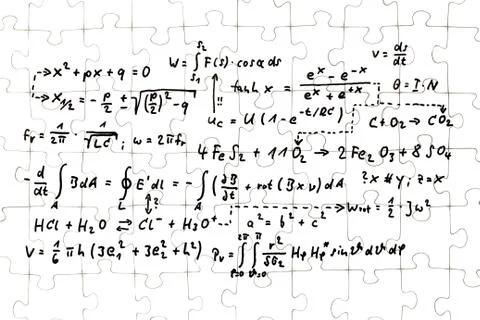 W = ∫ₛ₁ˢ² F(s)·cosα ds
v = ds/dt
x² + px + q = 0
x₁/₂ = -p/2 ± √((p/2)² - q)
tanh x = (eˣ - e⁻ˣ)/(eˣ + e⁺ˣ)
θ = I·N
!!
u_c = U(1-e^(-t/RC))
C+O₂ → CO₂
f_r = 1/2π · 1/√LC ; ω = 2πf_r
4FeS₂ + 11O₂ → 2Fe₂O₃ + 8SO₄
-d/dt ∫_A BdA = ∮_L E'dl = -∫_A (∂B/∂t + rot(B×v)dA
?x#y; z=x
?
HCl + H₂O ⇌ Cl⁻ + H₃O⁺
a² = b² + c²
W_rot = 1/2 · Jω²
V = 1/6 πh(3r₁² + 3r₂² + h²)
P_v = ∫_φ=0^2π ∫_ϑ=0^π r²/… HφHφ* sinϑ dϑ dφ